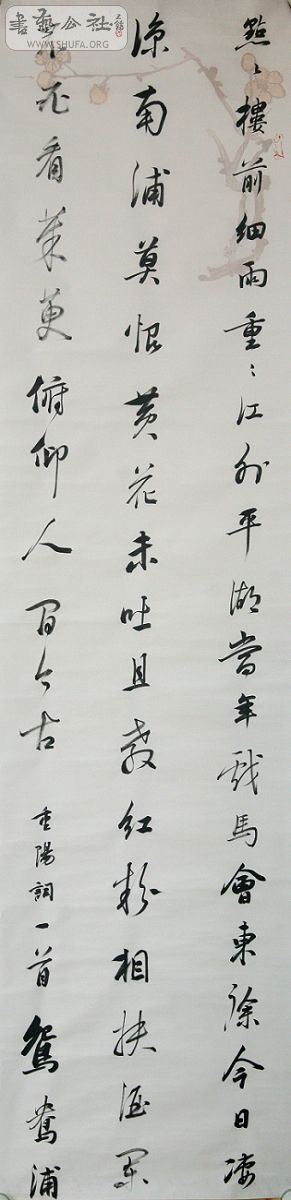 點〻樓前細雨重〻江外平湖當年戲馬會東徐今日凄
涼南浦莫恨黃花未吐且教紅粉相扶酒闌
不必看茱萸俯仰人間今古 重陽詞一首 鴛鴦浦
書藝公社
WWW.SHUFA.ORG